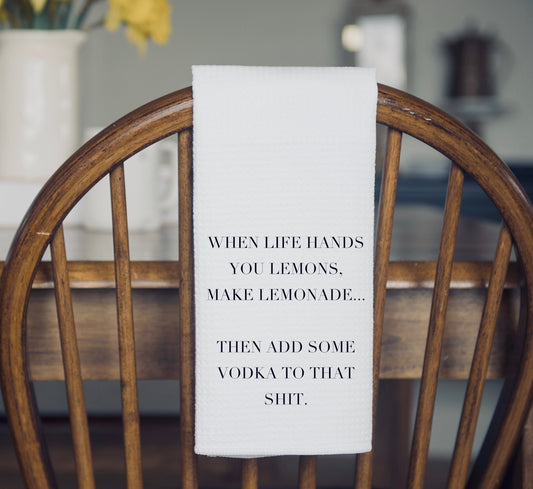 WHEN LIFE HANDS
YOU LEMONS,
MAKE LEMONADE...
THEN ADD SOME
VODKA TO THAT
SHIT.